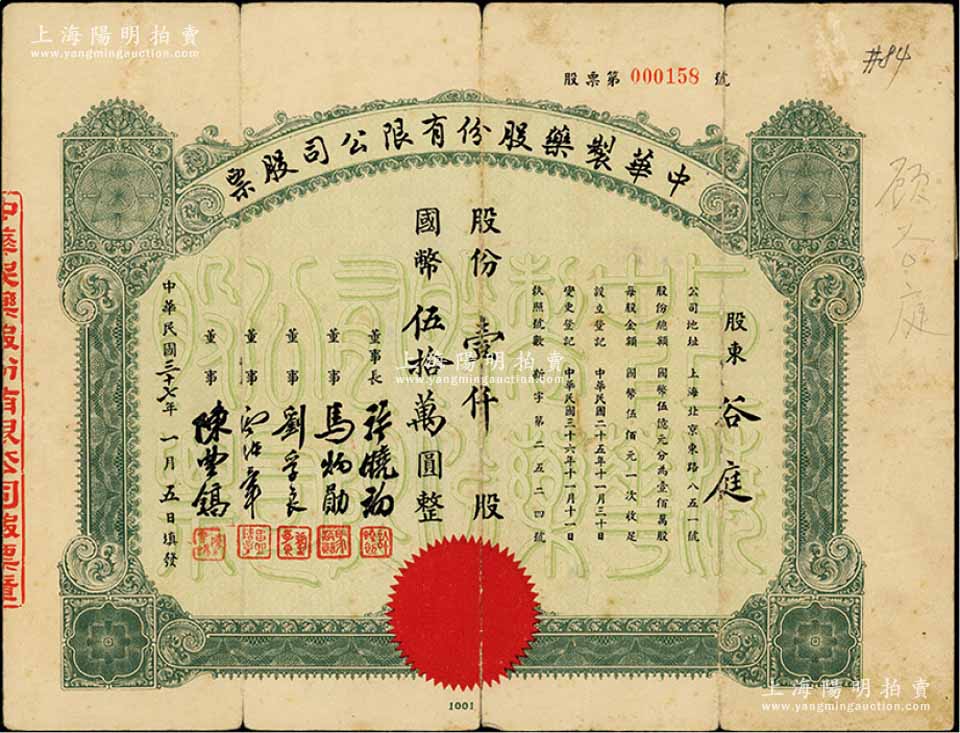 上海陽明拍賣
www.yangmingauction.com
#84
股票第 000158 號
中華製藥股份有限公司股票
股東 谷庭
公司地址 上海北京東路八五一號
股份總額 國幣伍億元分為壹佰萬股
每股金額 國幣伍佰元一次收足
設立登記 中華民國二十五年十一月三十日
變更登記 中華民國三十六年十一月十一日
執照號數 新字第二五二四號
股份 壹仟 股
國幣 伍拾萬 圓整
董事長
董事 馬炳勛
董事
董事
董事
中華民國三十七年 一月 五 日填發
上海陽明拍賣
www.yangmingauction.com
1001
上海陽明拍賣
www.yangmingauction.com